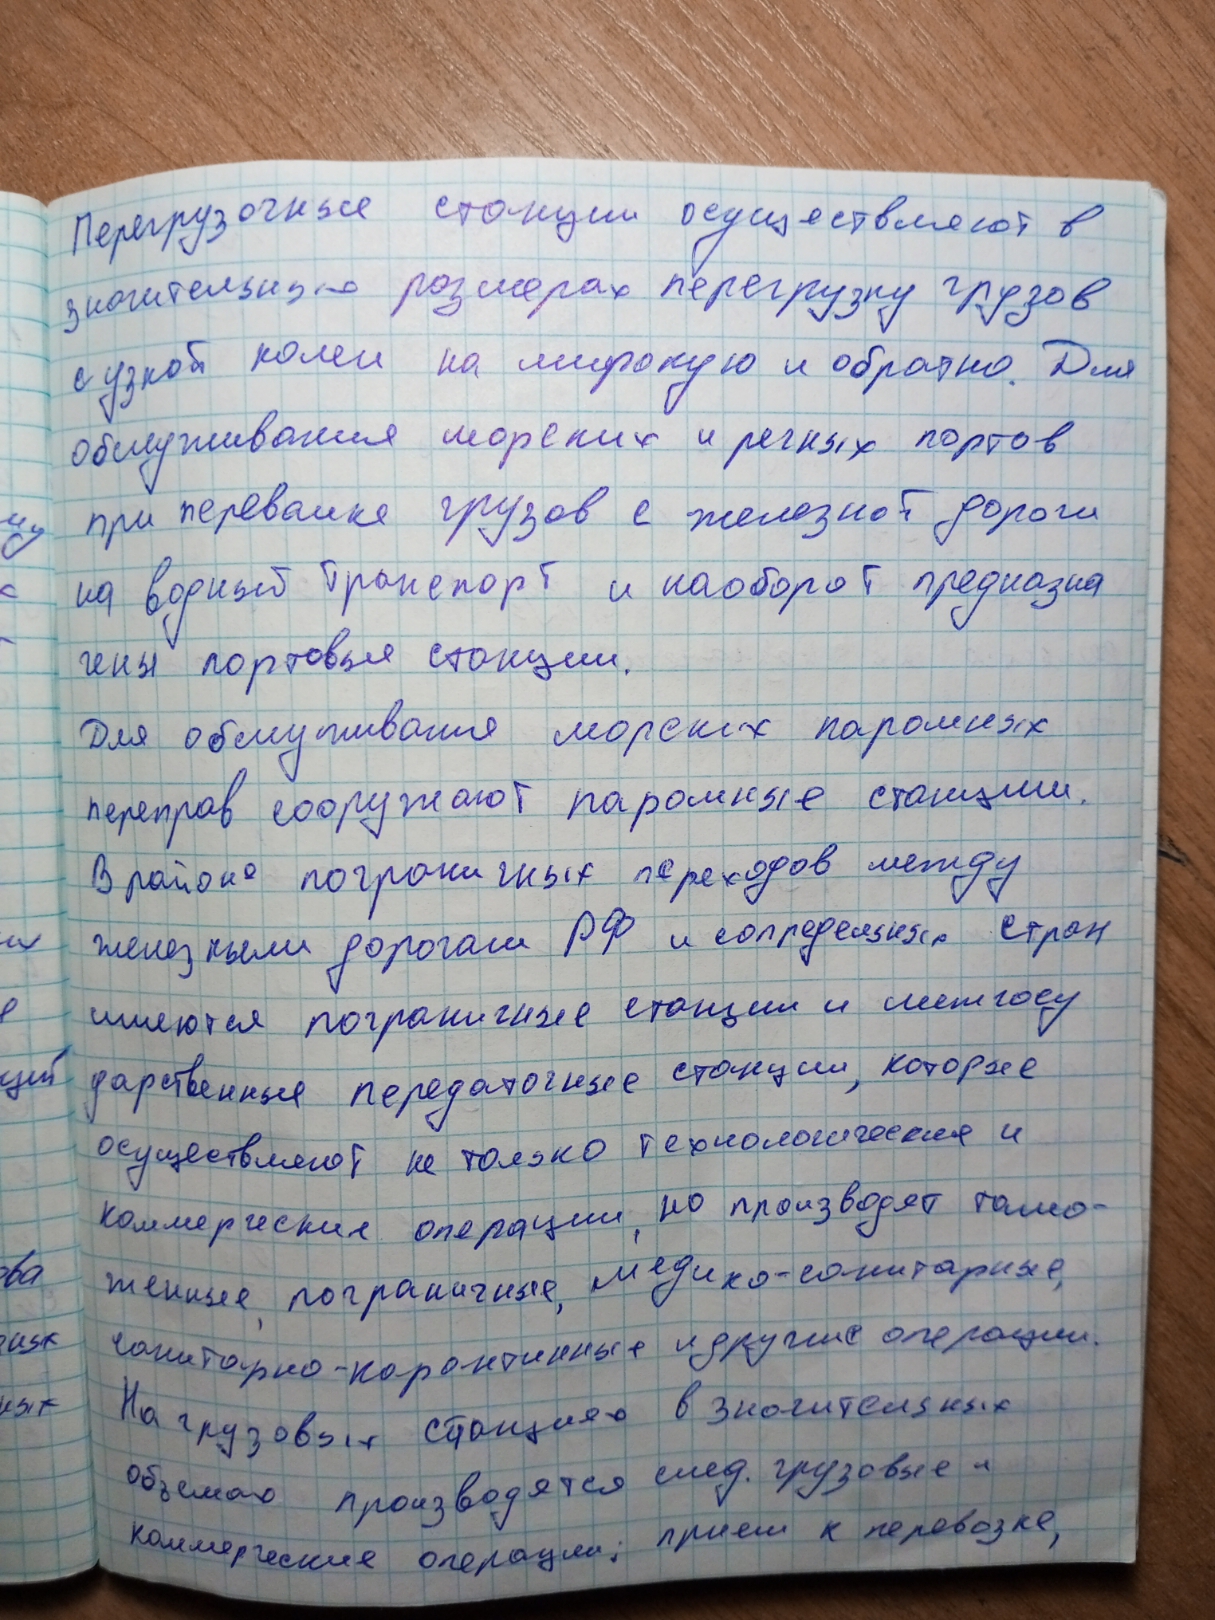 Перегрузочные станции осуществляют в
значительных размерах перегрузку грузов
с узкой колеи на широкую и обратно. Для
обслуживания морских и речных портов
при перевалке грузов с железной дороги
на водный транспорт и наоборот предназна
чены портовые станции.
Для обслуживания морских паромных
переправ сооружают паромные станции.
В районе пограничных переходов между
железными дорогами РФ и сопредельных стран
имеются пограничные станции и межгосу
дарственные передаточные станции, которые
осуществляют не только технологические и
коммерческие операции, но производят тамо-
женные, пограничные, медико-санитарные,
санитарно-карантинные и другие операции.
На грузовых станциях в значительных
объемах производятся след. грузовые и
коммерческие операции: прием к перевозке,